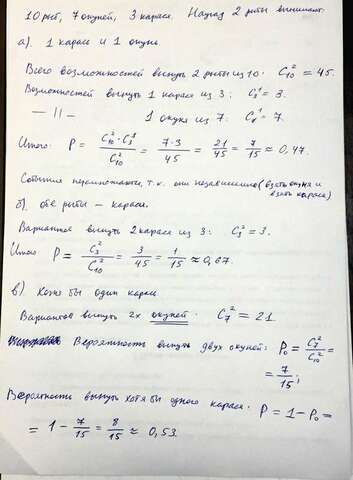 10 рыб, 7 окуней, 3 карася. Наугад 2 рыбы вынимают.
а). 1 карась и 1 окунь.
Всего возможностей вынуть 2 рыбы из 10: C₁₀² = 45.
Возможностей вынуть 1 карася из 3: C₃¹ = 3.
— || — 1 окуня из 7: C₇¹ = 7.
Итого: P = C₁₀²·C₃¹ / C₁₀² = 7·3 / 45 = 21/45 = 7/15 ≈ 0,47.
События перемножаются, т.к. они независимые (взять окуня и
взять карася)
б). обе рыбы – караси.
Вариантов вынуть 2 карася из 3: C₃² = 3.
Итого P = C₃² / C₁₀² = 3/45 = 1/15 ≈ 0,67.
в) Хотя бы один карась
Вариантов вынуть 2х окуней: C₇² = 21
Вероятность вынуть двух окуней: P₀ = C₇² / C₁₀² =
= 7/15;
Вероятность вынуть хотя бы одного карася: P = 1 – P₀ =
= 1 – 7/15 = 8/15 ≈ 0,53.